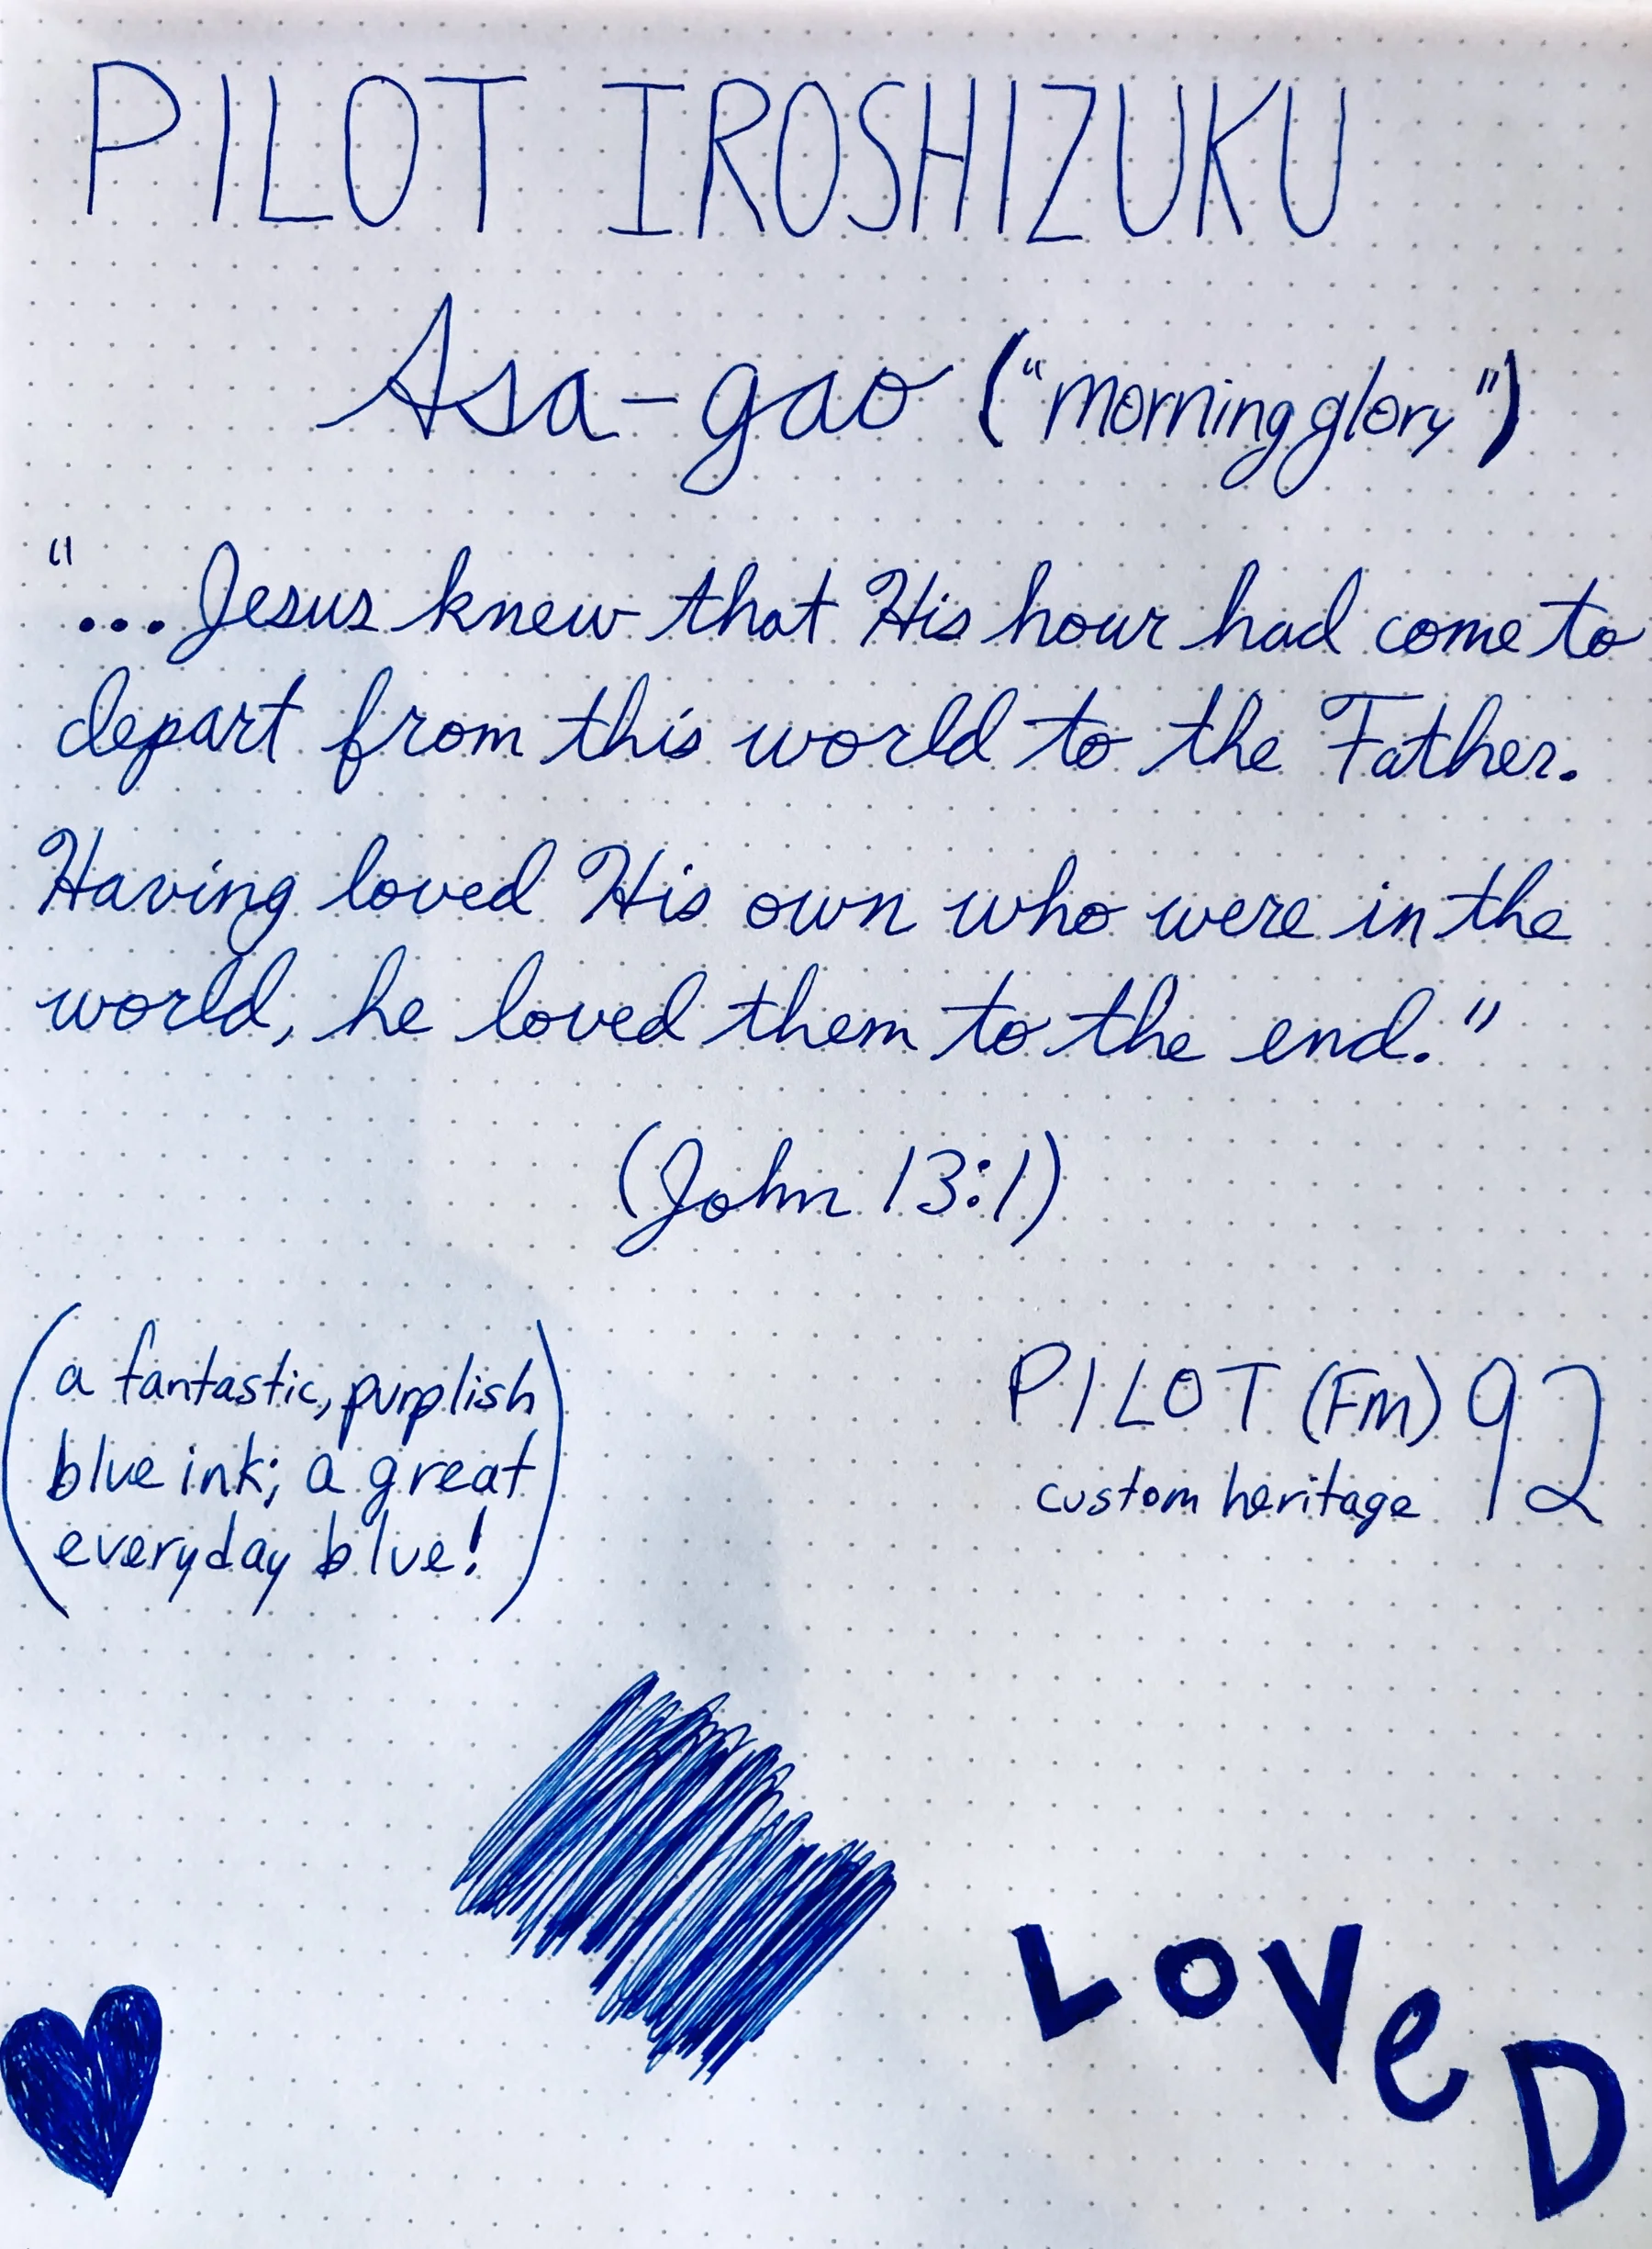 PILOT IROSHIZUKU
Asa-gao ("morning glory")
"...Jesus knew that His hour had come to
depart from this world to the Father.
Having loved His own who were in the
world, he loved them to the end."
(John 13:1)
(a fantastic, purplish
blue ink; a great
everyday blue!)
PILOT (FM) 92
custom heritage
LOVeD